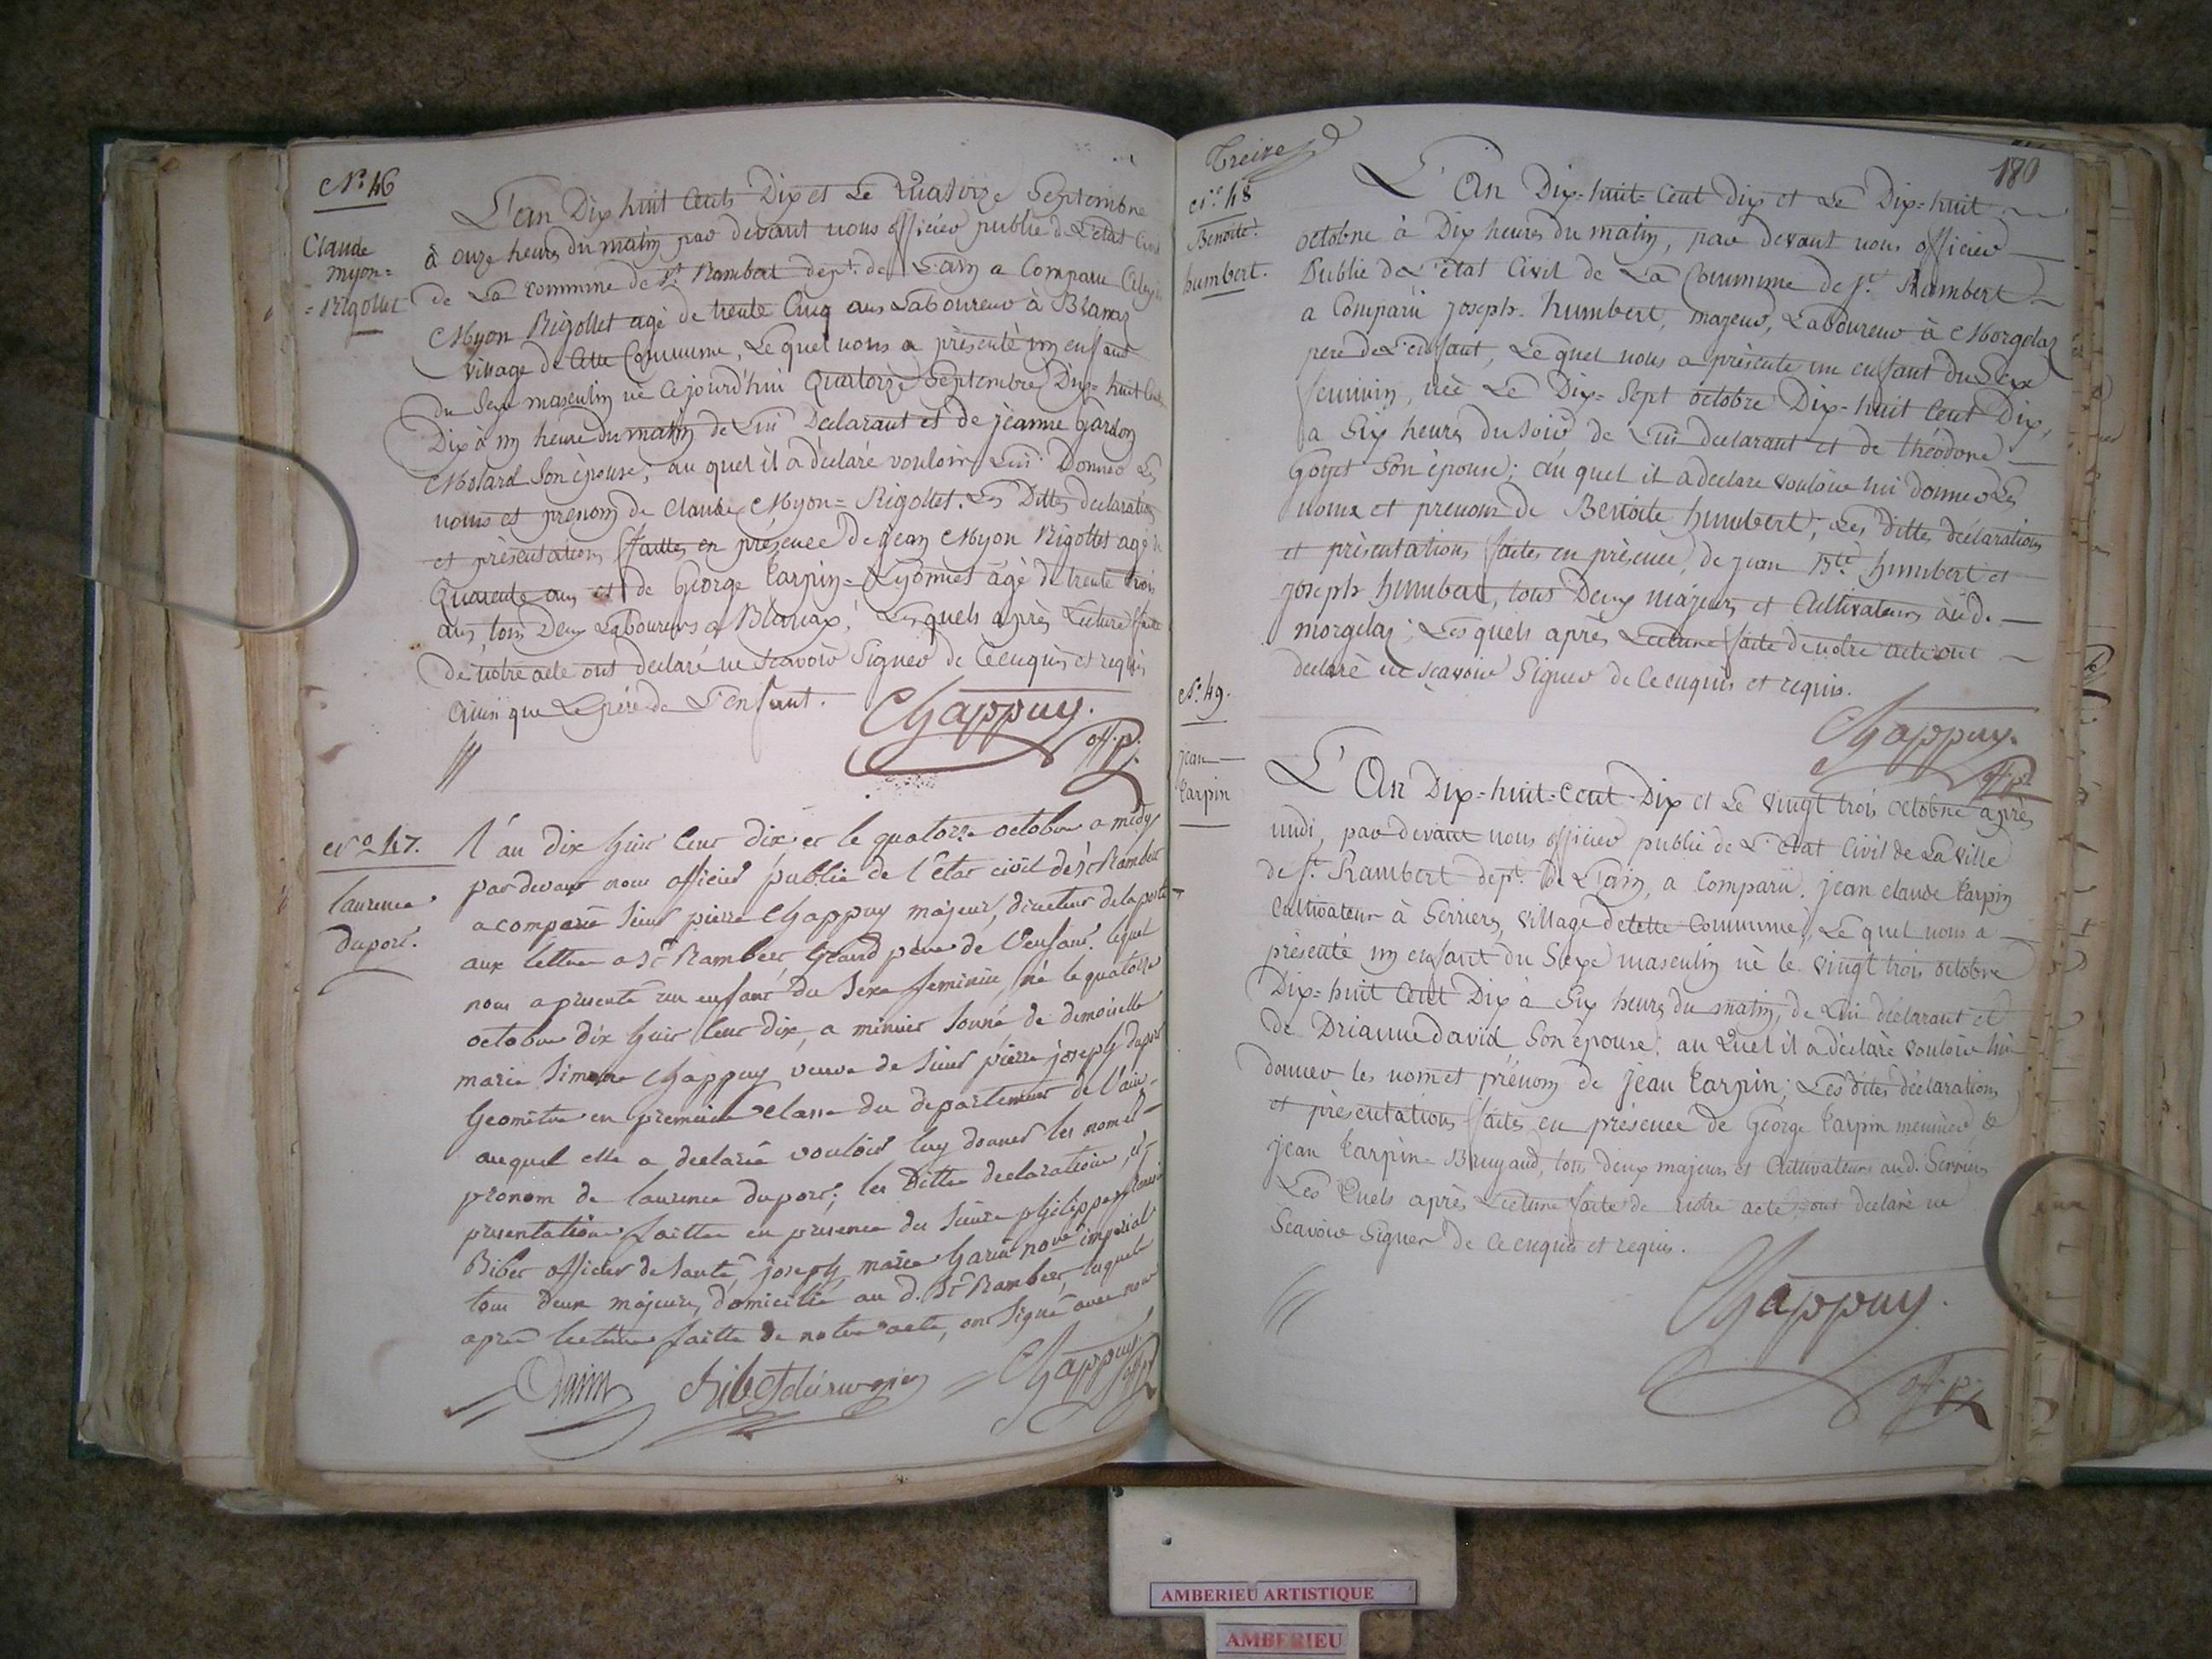 N.o 46
Claude
myon=
=Rigollet
L'an Dix huit Cents Dix et Le Quatorze Septembre
à onze heures du matin par devant nous officier public de L'etat Civil
de La commune de St. Rambert dept. de L'ain a Comparu Claude
Myon Rigollet agé de trente Cinq ans Laboureur à Blanaz
village de Cette Commune, Le quel nous a présenté un enfant
du Sexe masculin né Cejourd'hui Quatorze Septembre Dix=huit Cents
Dix à un heure du matin de Lui Déclarant et de jeanne Gardon
Molard Son épouse; au quel il a déclaré vouloir Lui Donner Les
noms et prenom de Claude Myon=Rigollet. Les Dittes declarations
et présentations faittes en présence de jean Myon Rigollet agé de
Quarente ans et de George Carpin=Lyonnet âgé de trente trois
ans, tous Deux Laboureurs a Blanaz, Les quels après Lecture faite
de notre acte ont declaré ne scavoir Signer de Ce enquis et requis
ainsi que Le père de L'enfant.
Chappuy.
off. p.
N.o 47.
laurence
duport.
l'an dix huit cent dix et le quatorze octobre a midy
par devant nous officier public de l'Etat civil de st Rambert
a comparu sieur pierre Chappuy majeur, directeur de la poste
aux lettres a St Rambert Grand père de l'enfant. lequel
nous a presenté un enfant du Sexe feminin, né le quatorze
octobre dix huit cent dix, a minuit sonné de demoiselle
marie Simone Chappuy veuve de sieur pierre joseph duport
Geometre en premiere classe du departement de l'ain -
auquel elle a declaré vouloir luy donner les nom et
pronom de laurence duport; les dittes declarations, et
presentations faittes en presence des sieurs philippe
Bibet officier de santé, joseph marie Garin nore imperial
tous deux majeurs, domicilié au d. St Rambert, lesquels
après lecture faitte de notre acte, ont signé avec nous
Garin
Chappuy
Treize
180
N.o 48
Benoite.
humbert.
L'An Dix=huit=Cent Dix et Le Dix=huit
octobre à Dix heures du matin, par devant nous officier
Public de L'état Civil de La Commune de St. Rambert
a Comparu joseph humbert, majeur, Laboureur à Morgelaz
pere de L'enfant, Le quel nous a présenté un enfant du Sexe
feminin, née Le Dix=Sept octobre Dix=huit Cent Dix,
a Six heures du Soir de Lui declarant et de théodore
Goyet Son épouse; au quel il a declaré vouloir lui donner Les
noms et prenom de Benoite humbert; Les Dittes déclarations
et présentations faites en présence, de jean Bte humbert et
joseph humbert, tous Deux majeurs et Cultivateurs audt.
morgelaz; Les quels après Lecture faite de notre acte ont
declaré ne scavoir Signer de Ce enquis et requis.
Chappuy.
off. p.
N.o 49.
jean
Carpin
L'An Dix=huit=Cent=Dix et Le vingt trois octobre après
midi, par devant nous officier public de L'etat Civil de La Ville
de St. Rambert dept. de L'ain, a Comparu jean claude Carpin
Cultivateur à Serrieres, village de cette Commune, Le quel nous a
présenté un enfant du Sexe masculin né le vingt trois octobre
Dix=huit Cent Dix à Six heures du matin, de Lui déclarant et
de Drianne david Son épouse; au Quel il a déclaré vouloir lui
donner les nom et prénom de jean Carpin; Les dites déclarations
et présentations faites en présence de George Carpin meunier &
jean Carpin=Bruyaud, tous deux majeurs et Cultivateurs aud. Serrieres
Les Quels après Lecture faite de notre acte, ont declaré ne
Scavoir Signer de Ce enquis et requis.
Chappuy.
off. p.
AMBERIEU ARTISTIQUE
AMBERIEU